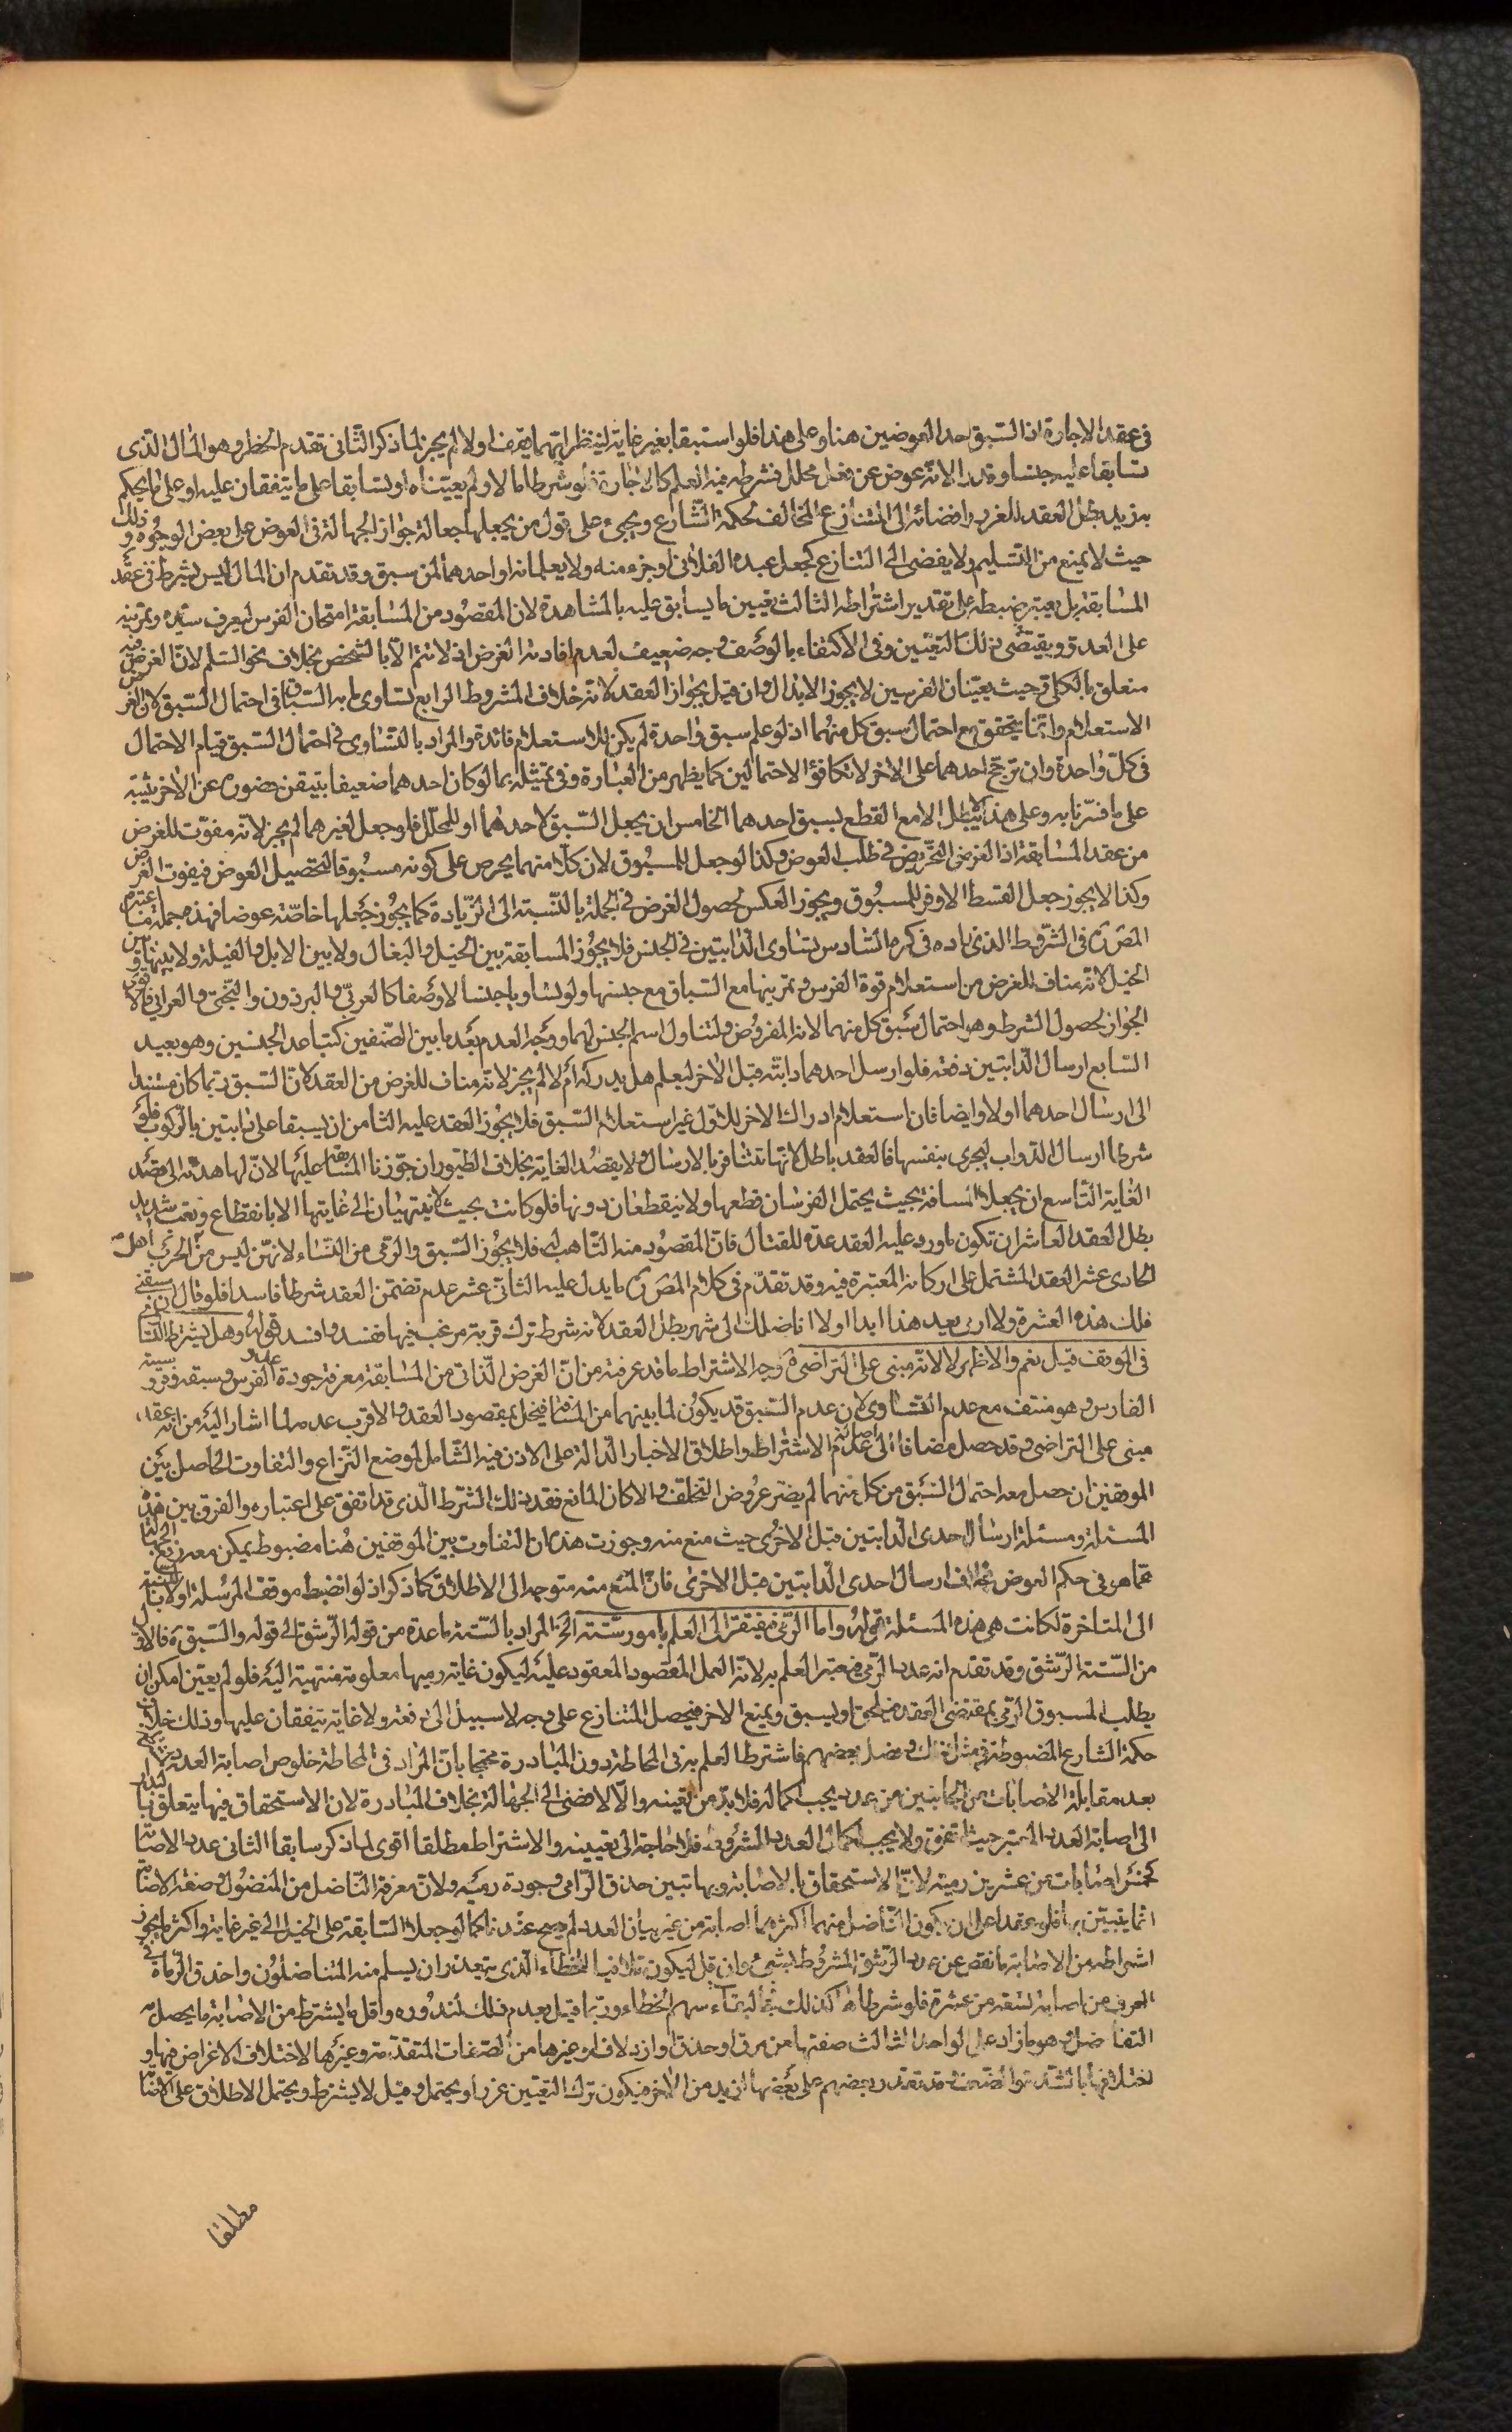 فى عقد الاجارة اذ السّبق احد العوضين هنا وعلى هذا فلو استبقا بغير غاية لينظر ايّهما يقف اولا لم يجز لما ذكر الثّانى تقدم الخطر وهو المال الّذى
تسابقا عليه جنسا وقدرا لانّه عوض عن فعل محلل فشرط فيه العلم كالاجارة فلو شرطا مالا ولم يعيّناه او تسابقا على ما يتفقان عليه او على ما يحكم
به زيد بطل العقد للغرر وافضائه الى التنازع المخالف لحكمة الشّارع ويجىء على قول من يجعلها جعالة جواز الجهالة فى العوض على بعض الوجوه وذلك
حيث لا يمنع من التّسليم ولا يفضى الى التنازع كجعل عبده الفلانى او جزء منه ولا يعلمانه او احدهما لمن سبق وقد تقدم ان المال ليس بشرط فى عقد
المسابقة بل يعتبر ضبطه على تقدير اشتراطه الثالث تعيين ما يسابق عليه بالمشاهدة لان المقصود من المسابقة امتحان الفرس ليعرف سيره وتمرينه
على العدو ويقتضى ذلك التعيّين وفى الاكتفاء بالوصف وجه ضعيف لعدم افادته الغرض اذ لا تتم الّا بالشخص بخلاف نحو السّلم لانّ الغرض فيه
متعلق بالكلى وحيث يعيّنان الفرسين لا يجوز الابدال وان قيل بجواز العقد لانّه خلاف المشروط الرابع تساوى ما به السّباق فى احتمال السّبق لان الغرض
الاستعلام وانّما يتحقق مع احتمال سبق كل منهما اذ لو علم سبق واحدة لم يكن للاستعلام فائدة والمراد بالتّساوى فى احتمال السّبق قيام الاحتمال
فى كلّ واحدة وان ترجّح احدهما على الاخر لا تكافؤ الاحتمالين كما يظهر من العبارة وفى تمثيله بما لو كان احدهما ضعيفا يتيقن قصوره عن الاخر تنبيه
على ما فسّرنا به وعلى هذا لا يبطل الا مع القطع بسبق احدهما الخامس ان يجعل السّبق لاحدهما او للمحلّل فلو جعل لغيرهما لم يجز لانّه مفوّت للغرض
من عقد المسابقة اذ الغرض التّحريض فى طلب العوض وكذا لو جعل للمسبوق لان كلّا منهما يحرص على كونه مسبوقا لتحصيل العوض فيفوت الغرض
وكذا لا يجوز جعل القسط الاوفر للمسبوق ويجوز العكس لحصول الغرض فى الجملة بالنّسبة الى الزّيادة كما يجوز جعلها خاصّة عوضا فهذه جملة ما اعتبره
المصّ فى الشّروط الذى زاده فى كره السّادس تساوى الدّابتين فى الجنس فلا يجوز المسابقة بين الخيل والبغال ولا بين الابل والفيلة ولا بينها وبين
الخيل لانّه مناف للغرض من استعلام قوة الفرس وتمرينها مع السّباق مع جنسها ولو تساويا جنسا لا وصفا كالعربّى والبرذون والبختّى والعرابّى فالاقوى
الجواز لحصول الشرط وهو احتمال سبق كل منهما لانه المفروض ولتناول اسم الجنس لهما ووجه العدم بعد ما بين الصّنفين كتباعد الجنسين وهو بعيد
السّابع ارسال الدّابتين دفعة فلو ارسل احدهما دابّته قبل الاخر ليعلم هل يدركه أم لا لم يجز لانّه مناف للغرض من العقد لانّ السّبق ربّما كان مستندا
الى ارسال احدهما اولا وايضا فان استعلام ادراك الاخر للاوّل غير استعلام السّبق فلا يجوز العقد عليه الثامن ان يسبقا على دابتين بالرّكوب فلو
شرطا ارسال الدّواب لتجرى بنفسها فالعقد باطل لانّها تتنافر بالارسال ولا يقصد الغاية بخلاف الطّيور ان جوّزنا المسابقة عليها لانّ لها هداية الى قصد
الغاية التّاسع ان يجعلا المسافة بحيث يحتمل الفرسان قطعها ولا ينقطعان دونها فلو كانت بحيث لا ينتهيان الى غايتها الا بانقطاع وتعب شديد
بطل العقد العاشر ان تكون ما ورد عليه العقد عدّة للقتال فانّ المقصود منه التأهب له فلا يجوز السّبق والرّمى من النّساء لانهنّ ليس من أهل الحرب
الحادى عشر العقد المشتمل على اركانه المعتبرة فيه وقد تقدّم فى كلام المصّ ما يدل عليه الثانى عشر عدم تضمّن العقد شرطا فاسدا فلو قال ان سبقتنى
فلك هذه العشرة ولا ارمى بعد هذا ابدا او لا اناضلك الى شهر بطل العقد لانه شرط ترك قربة مرغب فيها ففسد وافسد قوله وهل يشترط التّساوى
فى الموقف قيل نعم والاظهر لا لانّه مبنى على التّراضى وجه الاشتراط ما قد عرفته من انّ الغرض الذّاتى من المسابقة معرفة جودة عدو الفرس وسبقه وفروسية
الفارس وهو منتف مع عدم التّساوى لان عدم السّبق قد يكون لما بينهما من المسافة فيخل بمقصود العقد والاقرب عدمه لما اشار اليه من انّه عقد
مبنى على التراضى وقد حصل مضافا الى اصالة عدم الاشتراط واطلاق الاخبار الدّالة على الاذن فيه الشّامل لموضع النّزاع والتفاوت الحاصل بين
الموقفين ان حصل معه احتمال السّبق من كل منهما لم يضر عروض التخلّف والا كان المانع فقد ذلك الشّرط الّذى قد اتفق على اعتباره والفرق بين هذه
المسئلة ومسئلة ارسال احدى الدّابتين قبل الاخرى حيث منع منه وجوزت هذه ان التفاوت بين الموقفين هنا مضبوط يمكن معه
فى حكم العوض بخلاف ارسال احدى الدّابتين قبل الاخرى فانّ المنع منه متوجه الى الاطلاق كما ذكر اذ لو انضبط موقف المرسلة اولا بالنسبة
الى المتاخرة لكانت هى هذه المسئلة قوله وامّا الرّمى فيفتقر الى العلم بامور ستّة الخ المراد بالستّة ما عدّه من قوله الرّشق الى قوله والسّبق فالاوّل
من السّتة الرّشق وقد تقدم انه عدد الرّمى فيعتبر العلم به لانّه العمل المقصود المعقود عليه ليكون غاية رميها معلومة منتهية اليه فلو لم يعيّن امكن ان
يطلب المسبوق الرّمى بمقتضى العقد فيلحق او يسبق ويمنع الاخر فيحصل التنازع على وجه لا سبيل الى دفعه ولا غاية يتفقان عليها وذلك خلاف
حكمة الشارع المضبوطة فى مثل ذلك وفصل بعضهم فاشترط العلم به فى المحاطة دون المبادرة محتجا بانّ المراد فى المحاطة خلوص اصابة العدد
بعد مقابلة الاصابات من الجانبين من عدد يجب اكماله فلا بدّ من تعيينه والّا لافضى الى الجهالة بخلاف المبادرة لان الاستحقاق فيها يتعلق بالبدار
الى اصابة العدد المعتبر حيث اتفق ولا يجب اكمال العدد المشروط فلا حاجة الى تعيينه والاشتراط مطلقا اقوى لما ذكر سابقا الثانى عدد الاصابة
كخمس اصابات من عشرين رمية لانّ الاستحقاق بالاصابة وبها تبين حذق الرّامى وجودة رميه ولانّ معرفة النّاضل من المنضول وصفة الاصابة
انّما يتبيّن بها فلو عقدا على ان يكون النّاضل منهما اكثرهما اصابة من غير بيان العدد لم يصح عندنا كما لو جعلا السّابقة على الخيل الى غير غاية واكثر ما يجوز
اشتراطه من الاصابة ما نقص عن عدد الرّشق المشروط بشىء وان قل ليكون تلافيا للخطاء الّذى يتعذر ان يسلم منه المتناضلون واحذق الرّماة فى
العرف من اصابة تسعة من عشرة فلو شرطا كذلك سهم الخطاء وربّما قيل بعدم ذلك لندوره واقل ما يشترط من الاصابة ما يحصل به
التفاضل وهو ما زاد على الواحد الثالث صفتها من مرق او خذق او ازدلاف او غيرها من الصّفات المتقدّمة وغيرها لاختلاف الاغراض فيها و
اختلافها بالشّدة والضّعف بعضهم على بعضها ازيد من الاخر فيكون ترك التعيّين غررا ويحتمل وقيل لا يشترط ويحتمل الاطلاق على الاصابة
مطلقا